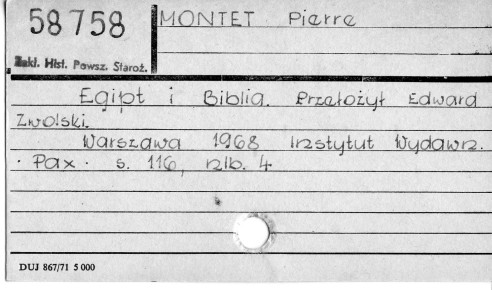 58758
MONTET Pierre
Zakł. Hist. Powsz. Staroż.
Egipt i Biblia. Przełożył Edward
Zwolski.
Warszawa 1968 Instytut Wydawn.
· Pax · s. 116, nlb. 4
DUJ 867/71 5 000